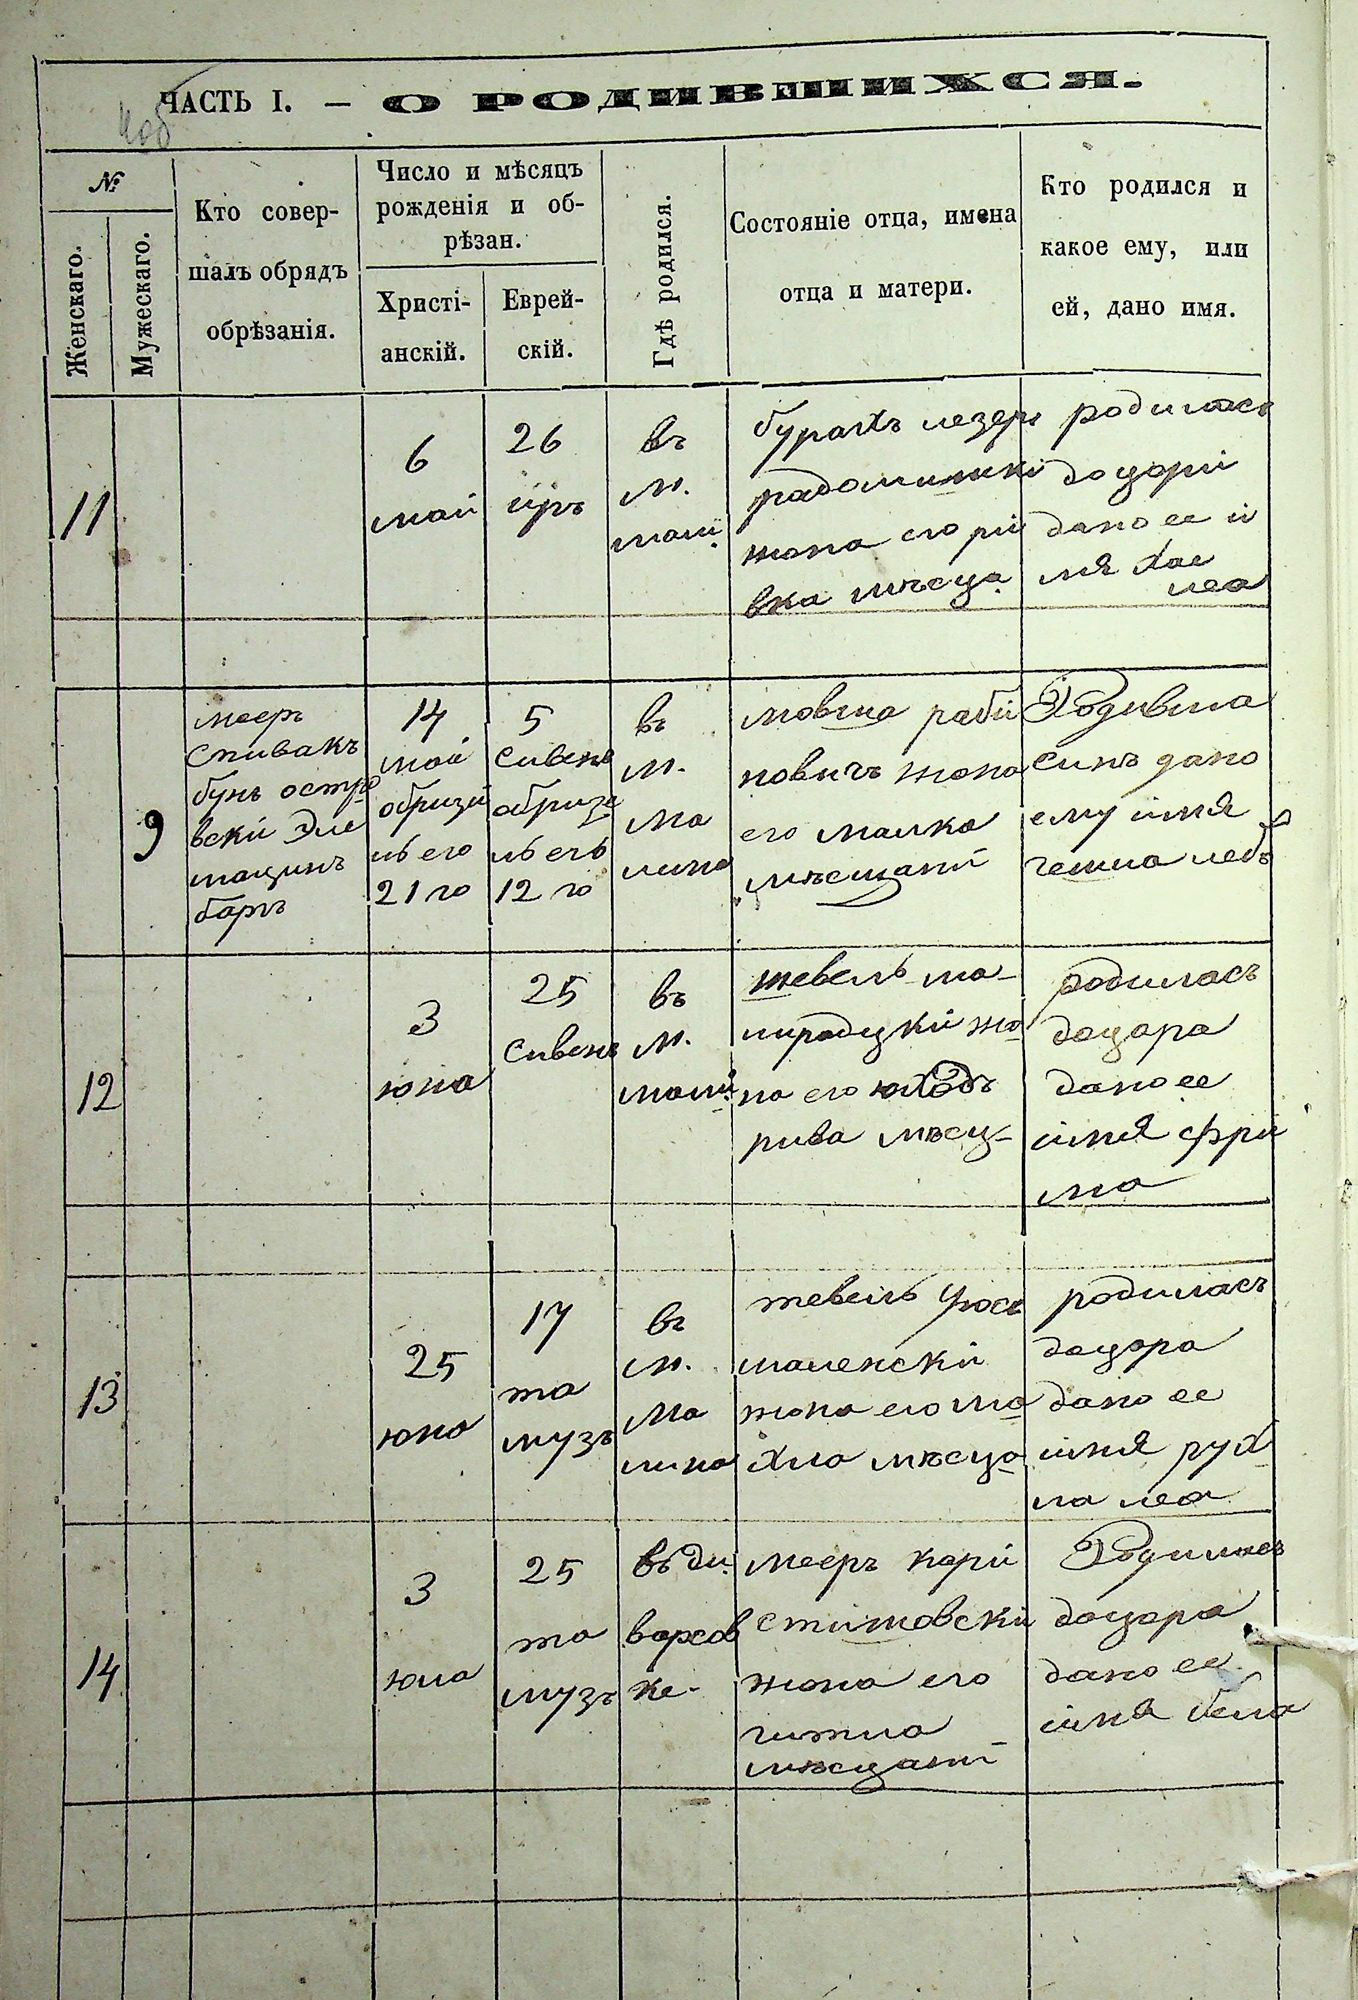 ЧАСТЬ I. — О РОДИВШИХСЯ.
№
Женскаго.
Мужескаго.
Кто совер-
шалъ обрядъ
обрѣзанія.
Число и мѣсяцъ
рожденія и об-
рѣзан.
Христі-
анскій.
Еврей-
скій.
Гдѣ родился.
Состояніе отца, имена
отца и матери.
Кто родился и
какое ему, или
ей, дано имя.
11
6
май
26
іиръ
въ
м.
мали.
бурахъ лезеръ
радомишскі
жона его рі
вка мѣсца.
родилась
доцорі
дано ее и
мя хае
леа
9
меер
спивакъ
бунъ остро
вскі Эле
мацинъ
баръ
14
май
обриза
нь его
21 го
5
сивенъ
обриза
нь его
12 го
въ
м.
ма
лина
мовша раби
новичъ жона
его малка
мѣсщані
Родивша
синъ дано
ему імя
гешиа лебъ
12
3
юна
25
сивенъ
въ
м.
мали.
тевель ма-
жо-
на его
рива мѣсц-
родилась
доцора
дано ее
імя фри
ма
13
25
юна
17
та
музъ
въ
м.
ма
лина
тевель
маленскі
жона его ма
хла мѣсца
родилась
доцора
дано ее
імя рух
ла леа
14
3
юла
25
та
музъ
въ ди.
варсов
ке.
мееръ кори
стишовскі
жона его
гитла
мѣсцані
Родилась
доцора
дано ее
імя бела